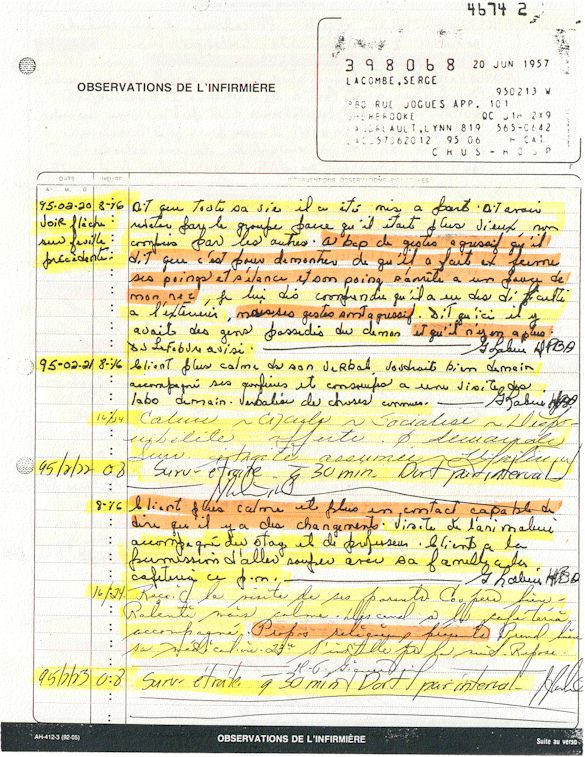 4674 2
OBSERVATIONS DE L'INFIRMIÈRE
398068 20 JUN 1957
LACOMBE, SERGE
950213 W
RUE JOGUES APP. 101
QC J1H 2X9
LYNN 819 565-0642
95 06
CHUS - HOSP
DATE HEURE INTERVENTIONS OBSERVATIONS
A M D
95-02-20 8-16 Dit que toute sa vie il a été mis à part. Dit avoir
voir flèche par le groupe parce qu'il était plus vieux non
sur feuille compris par les autres. A bcp de gestes agressif qu'il
précédente. dit que c'est pour démontrer de qu'il a fait ex ferme
ses poings et s'élance et son poing s'arrête a un pouce de
mon nez, je lui dis comprendre qu'il a eu des difficulté
a l'extérieur, mais ses gestes sont agressif. Dit qu'ici il y
avaits des gens possédés du démon et qu'il n'y en a plus.
Dr Lefebvre avisé.
95-02-21 8-16 Client plus calme de son verbal, voudrait bien demain
accompagné ses confrères et a une visite des
labo demain. Verbalise de choses connues.
16/24 Calme Socialise
offerte. demande
assumer
95/2/22 0-8 Surv étroite q 30 min. Dort par interval
8-16 Client plus calme et plus en contact capable de
dire qu'il y a des changements. Visite de
accompagné du stag et de professeur. Client a la
permission d'aller souper avec sa famille
cafétéria ce p.m.
16/24 Reçoit la visite de ses parents
Ralenti mais calme. Descend a la cafétéria
accompagné. Propos religieux présents. Prend
sa médication. 23h S'installe pour la nuit. Repose.
95/2/23 0-8 Surv étroite q 30 min Dort par interval
AH-412-3 (92-05) OBSERVATIONS DE L'INFIRMIÈRE Suite au verso